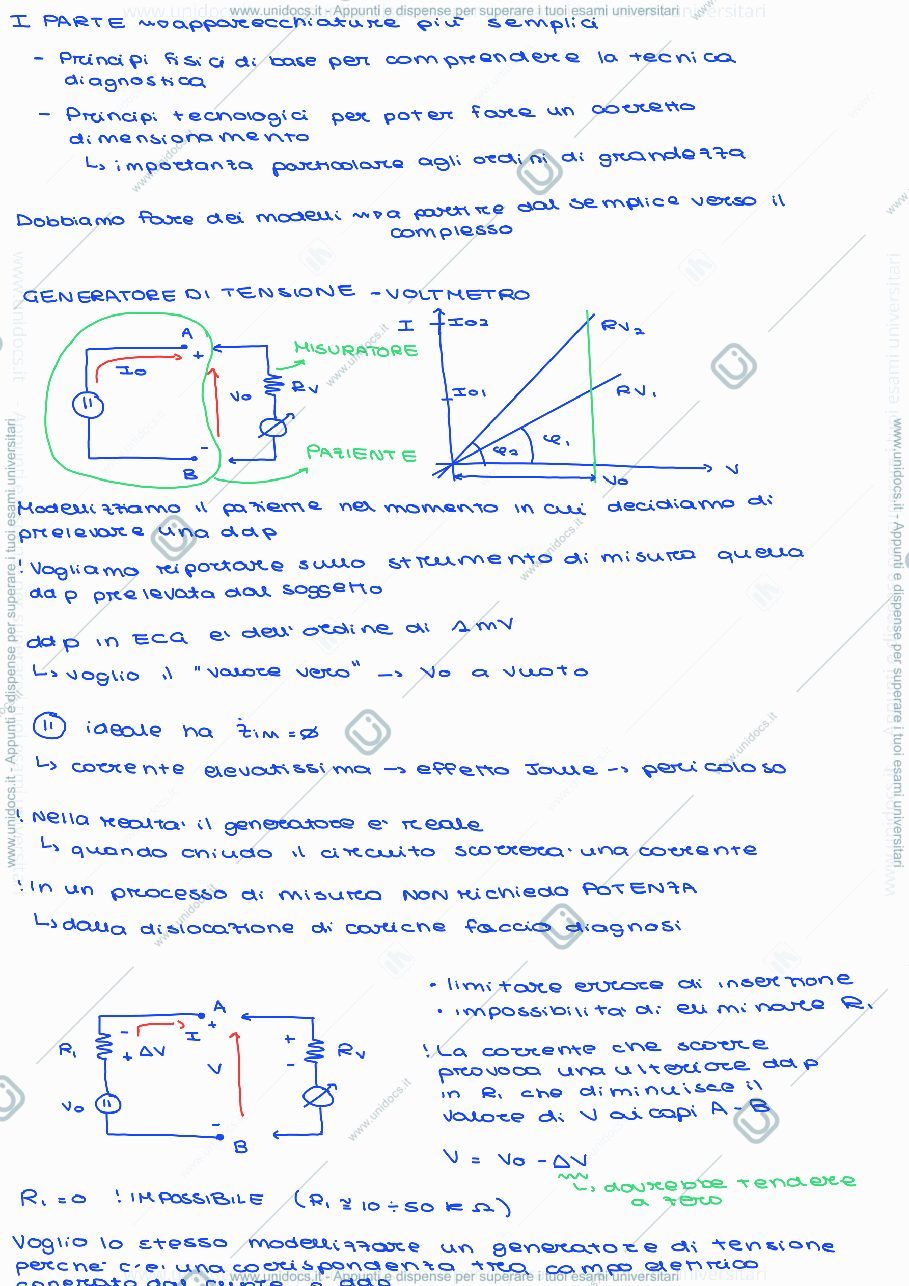 www.unidocs.it - Appunti e dispense per superare i tuoi esami universitari
I PARTE ⇝ apparecchiature più semplici
- Principi fisici di base per comprendere la tecnica
diagnostica
- Principi tecnologici per poter fare un corretto
dimensionamento
↳ importanza particolare agli ordini di grandezza
Dobbiamo fare dei modelli ⇝ a partire dal semplice verso il
complesso
GENERATORE DI TENSIONE - VOLTMETRO
A
+
I0
V0
-
B
RV
MISURATORE
PAZIENTE
I
I02
I01
RV2
RV1
φ2
φ1
V0
V
Modellizziamo il paziente nel momento in cui decidiamo di
prelevare una ddp
! Vogliamo riportare sullo strumento di misura quella
ddp prelevata dal soggetto
ddp in ECG e' dell' ordine di 1 mV
↳ voglio il "valore vero" → V0 a vuoto
ideale ha żim = ø
↳ corrente elevatissima → effetto Joule → pericoloso
! Nella realta' il generatore e' reale
↳ quando chiudo il circuito scorrera' una corrente
! In un processo di misura NON richiedo POTENZA
↳ dalla dislocazione di cariche faccio diagnosi
A
+
I
-
+ ΔV
R1
V0
V
-
B
+
-
RV
• limitare errore di inserzione
• impossibilita' di eliminare R1
! La corrente che scorre
provoca una ulteriore ddp
in R1 che diminuisce il
valore di V ai capi A-B
V = V0 - ΔV
↳ dovrebbe tendere
a zero
R1 = 0 ! IMPOSSIBILE (R1 ≅ 10 ÷ 50 k Ω)
Voglio lo stesso modellizzare un generatore di tensione
perche' c'e' una corrispondenza tra campo elettrico
www.unidocs.it - Appunti e dispense per superare i tuoi esami universitari